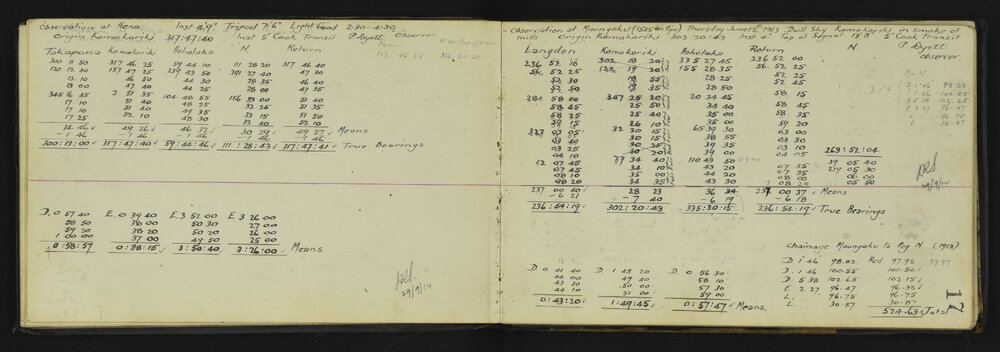 Observation at Hena Inst 4'9" Tripod 7'6" Light Good 2.30 - 4.30
Origin Komokoriki 317:47:40 Inst 5" Cook Transit P. Lyett Observer
Takapuna Komokoriki Hohotaka N. Return
300 11 50 317 46 25 59 44 10 111 28 20 317 46 40
120 12 10 137 47 25 239 43 50 291 27 40 47 30
12 10 46 50 44 30 28 35 46 40
13 00 47 40 44 25 28 00 47 35
345 16 45 2 51 35 104 48 55 156 33 00 51 40
17 10 51 40 48 25 32 35 51 35
17 10 51 40 49 35 33 15 51 50
17 25 52 10 48 30 32 40 52 10
14 46 49 26 46 32 30 29 49 27 Means
-1 46 -1 46 -1 46 -1 46 -1 46
300:13:00 317:47:40 59:44:46 111:28:43 317:47:41 True Bearings
D. 0 57 40 E. 0 39 40 E. 3 52 00 E 3 26 00
58 50 38 00 50 30 27 00
59 20 38 20 50 20 26 00
1 00 00 37 00 49 50 25 00
0:58:57 0:38:15 3:50:40 3:26:00 Means
29/9/14
Observation at Moungaku Thursday June 12th 1913 Dull Sky Komokoriki in smoke of
mills Origin Komokoriki 302:20:43 Inst at Top of Signal 19.8 5" Cook Transit
P. Lyett
observer.
Langdon Komokoriki Hohotaka Return N
236 52 18 302 18 20 335 27 45 236 52 00
56 52 25 122 19 20 155 28 35 56 52 25
52 30 18 55 28 25 52 25
52 50 18 50 28 50 52 45
281 58 00 347 25 20 20 34 35 58 15
58 45 25 50 34 40 58 45
58 25 25 40 35 00 58 35
59 10 35 00 59 20
327 03 05 32 30 15 65 39 30 03 00
03 40 30 15 38 55 03 30
03 20 30 35 39 35 03 10
04 10 30 40 39 00
12 07 45 77 34 40 110 43 50 07 35
07 45 34 10 43 20 07 35
08 10 35 00 44 20 08 00
08 20 34 35 43 30 08 20
263:52:04
39 05 40
219 05 30
06 00
05 50
237 00 40 28 23 36 34 237 00 37 Means
-6 21 -7 40 -6 19 -6 18
236:54:19 302:20:43 335:30:15 236:54:19 True Bearings
29/9/14
Chainage Moungaku to Peg N (1913)
D 1 46 98.02 Red. 97.98 97.97
D 1 46 100.55 100.50
D 5 38 102.65 102.15
E 2 27 96.47 96.38
L. 96.75 96.75
L. 30.87 30.87
524.63 Total
D. 0 41 40 D. 1 48 20 D. 0 56 30
44 00 49 40 58 10
43 30 50 00 57 30
44 10 51 00 59 00
0:43:20 1:49:45 0:57:47 Means.
17